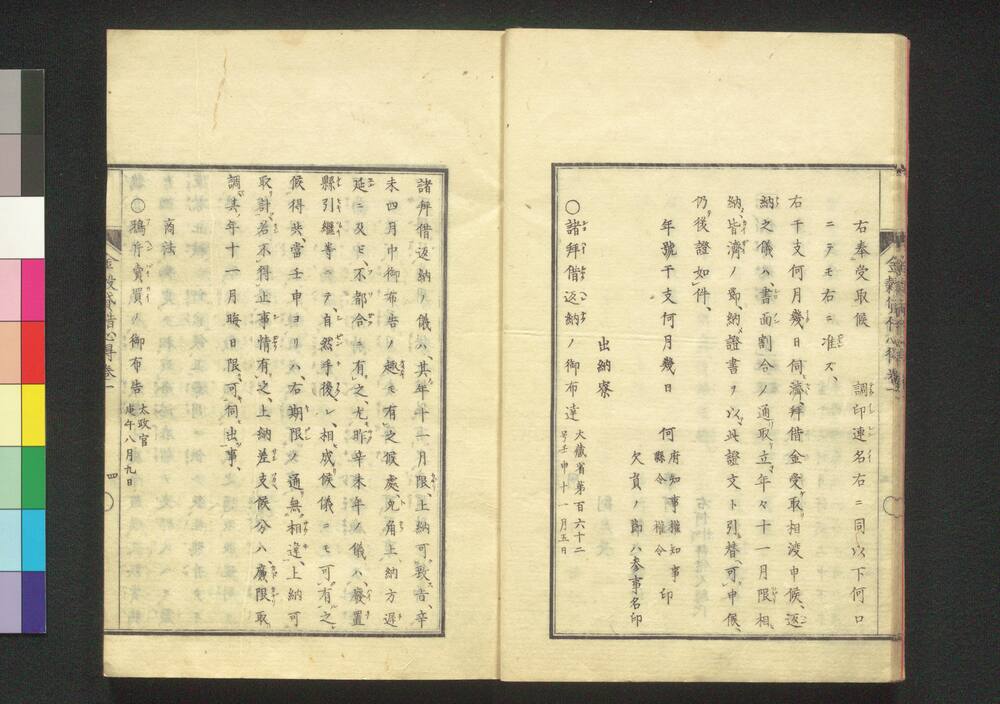 右奉受取候　調印連名右ニ同シ以下何口
ニテモ右ニ准ズ、
右干支何月幾日伺濟、拜借金受取相渡申候、返
納之儀ハ、書面割合ノ通取立年々十一月限相
納、皆濟ノ節、納證書ヲ以、此證文ト引替可申候、
仍後證如件、
年號干支何月幾日　何　府知事權知事　印
縣令　權令
欠員ノ節ハ參事名印
出納寮
〇諸拜借返納ノ御布達　大藏省第百六十二
号壬申十一月五日
諸拜借返納ノ儀ハ、其年十一月限、上納可致旨、辛
未四月中御布告ノ趣モ有之候處、兎角上納方遲
延ニ及ビ、不都合ニ有之、尤昨辛未年ノ儀ハ、廢置
縣引繼等ニテ自然手後レ、相成候儀ニモ可有之
候得共、當壬申ヨリハ、右期限之通無相違、上納可
取計、若不得止事情有之、上納差支候分ハ、廉限取
調其年十一月晦日限可伺出事、
商法
〇鴉片賣買ノ御布告　太政官
庚午八月九日
金穀貸借心得卷一
四